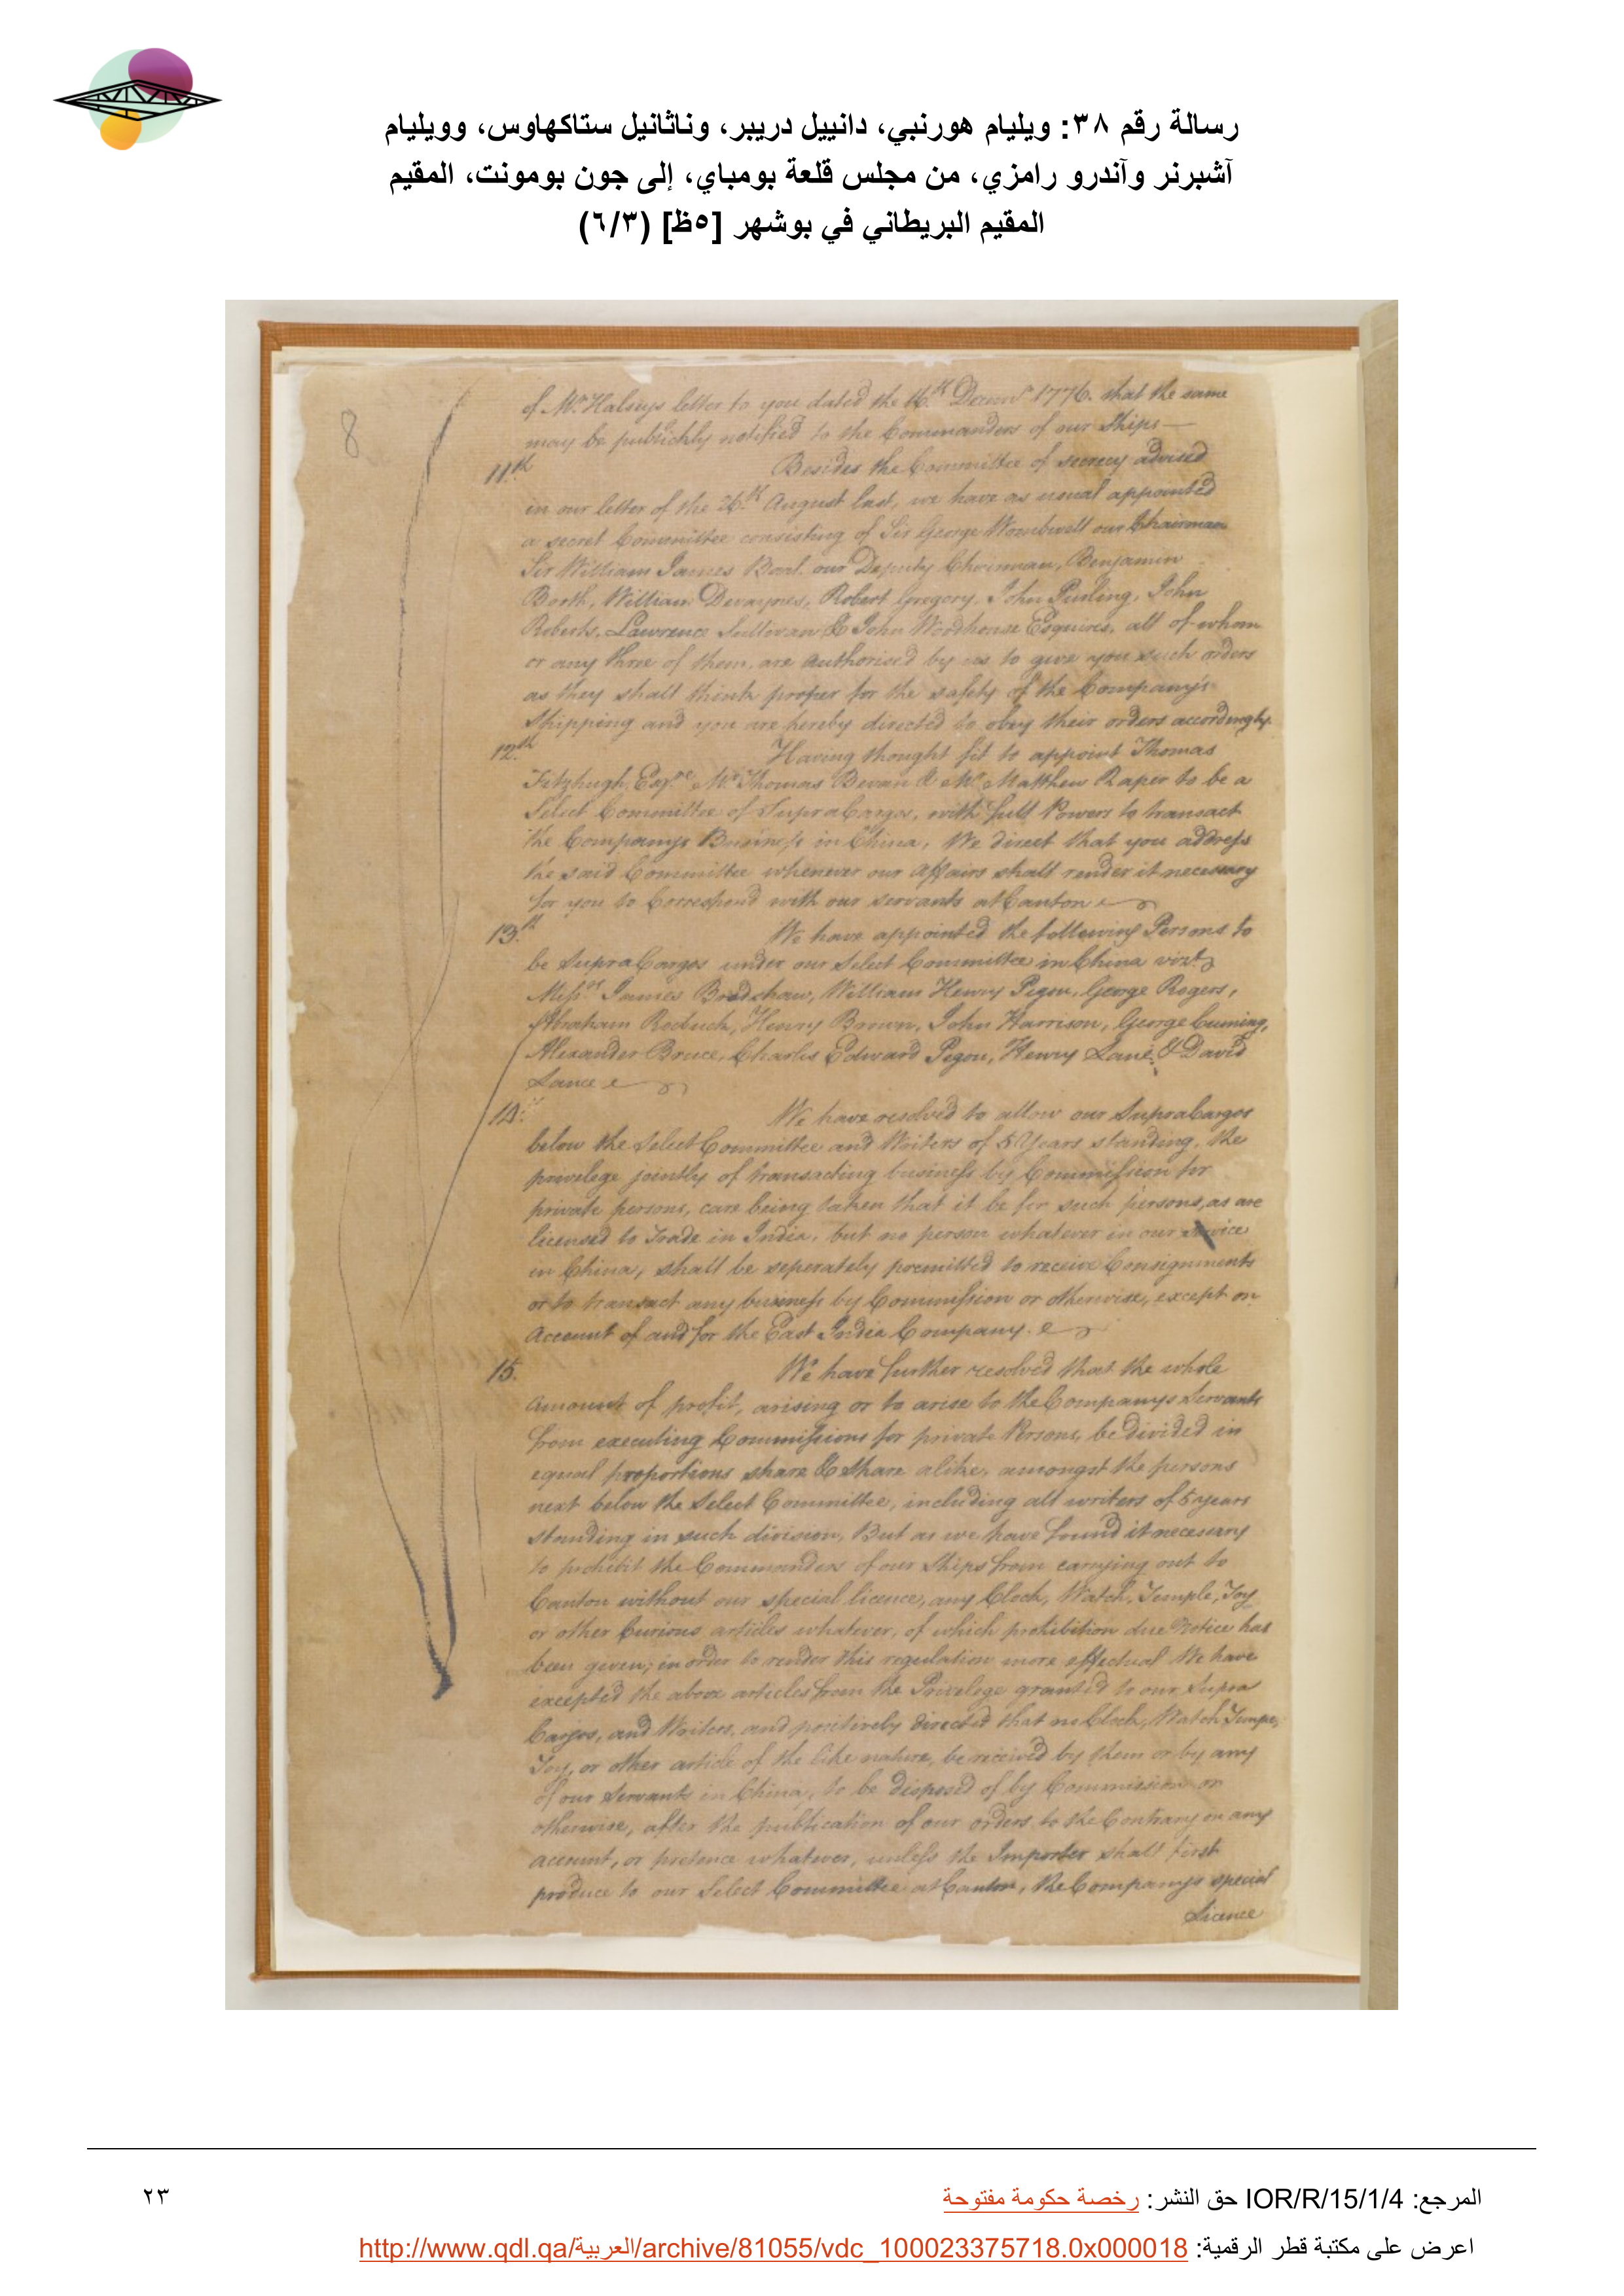 رسالة رقم ٣٨: ويليام هورنبي، دانييل دريبر، وناثانيل ستاكهاوس، وويليام
آشبرنر وآندرو رامزي، من مجلس قلعة بومباي، إلى جون بومونت، المقيم
المقيم البريطاني في بوشهر [٥ظ] (٦/٣)
8
of Mr. Halseys letter to you dated the 16th. Decemr. 1776. that the same
may be publickly notified to the Commanders of our Ships—
11th. Besides the Committee of secrecy advised
in our letter of the 26th. August last, we have as usual appointed
a secret Committee consisting of Sir George Wombwell our Chairman
Sir William James Bart. our Deputy Chairman, Benjamin
Booth, William Devaynes, Robert Gregory, John Purling, John
Roberts, Lawrence Sullivan & John Woodhouse Esquires, all of whom
or any three of them, are authorised by us to give you such orders
as they shall think proper for the safety of the Company's
Shipping and you are hereby directed to obey their orders accordingly.
12th. Having thought fit to appoint Thomas
Fitzhugh Esqre. Mr. Thomas Bevan & Mr. Matthew Raper to be a
Select Committee of SupraCargos, with full Powers to transact
the Companys Business in China, We direct that you address
the said Committee whenever our affairs shall render it necessary
for you to Correspond with our servants at Canton
13th. We have appointed the following Persons to
be SupraCargos under our Select Committee in China vizt.
Messrs. James Bradshaw, William Henry Pigou, George Rogers,
Abraham Roebuck, Henry Brown, John Harrison, George Cuming,
Alexander Bruce, Charles Edward Pigou, Henry Lane, & David
Lance
14. We have resolved to allow our SupraCargos
below the Select Committee and Writers of 5 Years standing, the
privelege jointly of transacting business by Commission for
private persons, care being taken that it be for such persons, as are
licensed to Trade in India, but no person whatever in our service
in China, shall be seperately premitted to receive Consignments
or to transact any business by Commission or otherwise, except on
Account of and for the East India Company.
15. We have further resolved that the whole
Amount of profit, arising or to arise to the Companys Servants
from executing Commissions for private Persons, be divided in
equal proportions share & share alike, amongst the persons
next below the Select Committee, including all writers of 5 years
standing in such division, But as we have found it necessary
to prohibit the Commanders of our Ships from carrying out to
Canton without our special licence, any Clock, Watch, Temple, Toy
or other Curious articles whatever, of which prohibition due Notice has
been given; in order to render this regulation more effectual We have
excepted the above articles from the Privelege granted to our Supra
Cargos, and Writers, and positively directed that no Clock, Watch,
Toy, or other article of the like nature, be received by them or by any
of our Servants in China, to be disposed of by Commission or
otherwise, after the publication of our orders to the Contrary on any
account, or pretence whatever, unless the Importer shall first
produce to our Select Committee at Canton, the Companys special
Licence
المرجع: IOR/R/15/1/4 حق النشر: رخصة حكومة مفتوحة
٢٣
اعرض على مكتبة قطر الرقمية: http://www.qdl.qa/العربية/archive/81055/vdc_100023375718.0x000018